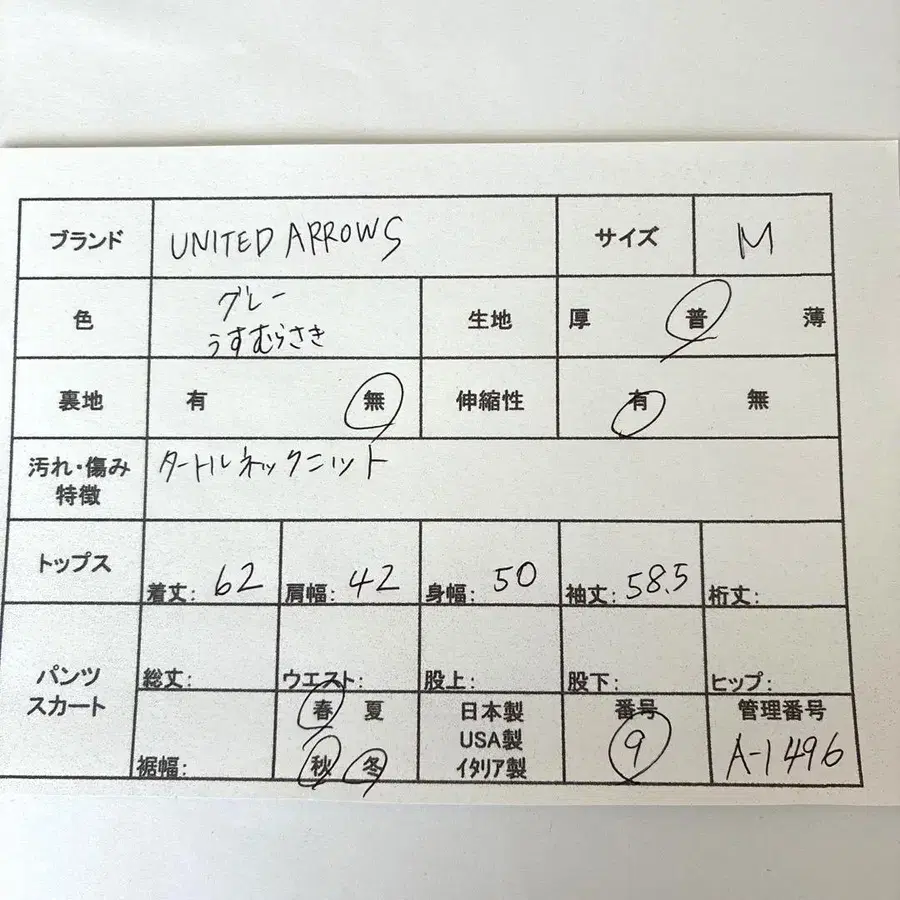 ブランド UNITED ARROWS サイズ M
色 グレー うすむらさき 生地 厚 普 薄
裏地 有 無 伸縮性 有 無
汚れ・傷み 特徴 タートルネックニット
トップス 着丈: 62 肩幅: 42 身幅: 50 袖丈: 58.5 裄丈:
パンツ スカート 総丈: ウエスト: 股上: 股下: ヒップ:
裾幅: 春 夏 秋 冬 日本製 USA製 イタリア製 番号 9 管理番号 A-1496